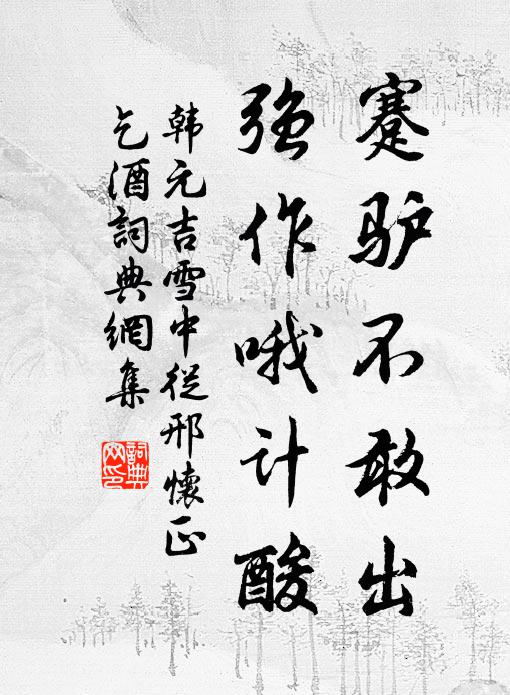 蹇驴不敢出
强作哦计酸
韩元吉雪中从邢怀正
乞酒词典网集
词典网印